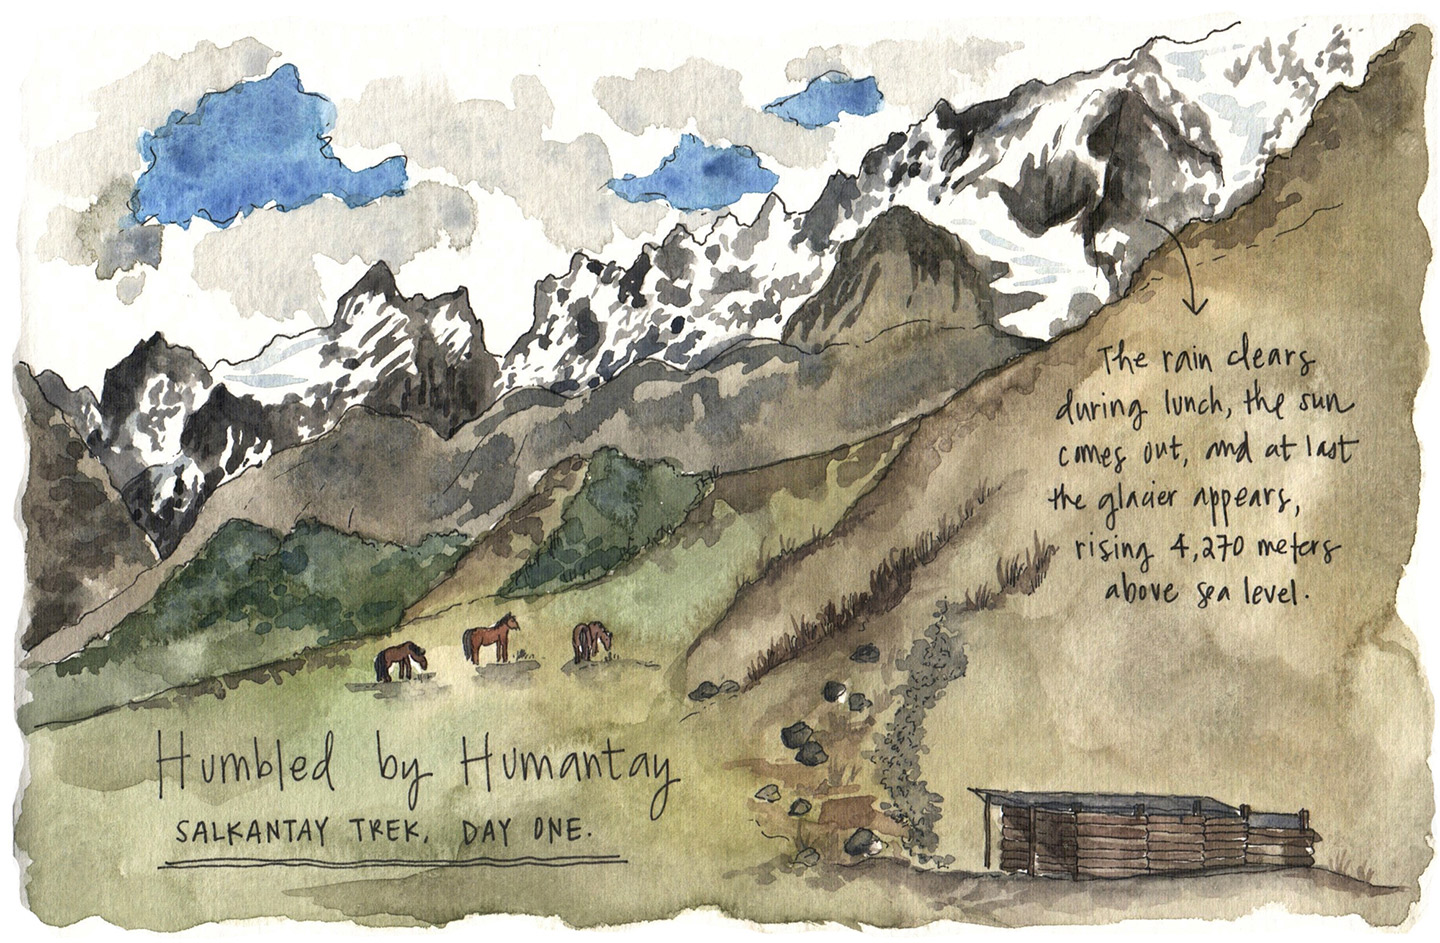 The rain clears
during lunch, the sun
comes out, and at last
the glacier appears,
rising 4,270 meters
above sea level.
Humbled by Humantay
SALKANTAY TREK, DAY ONE.